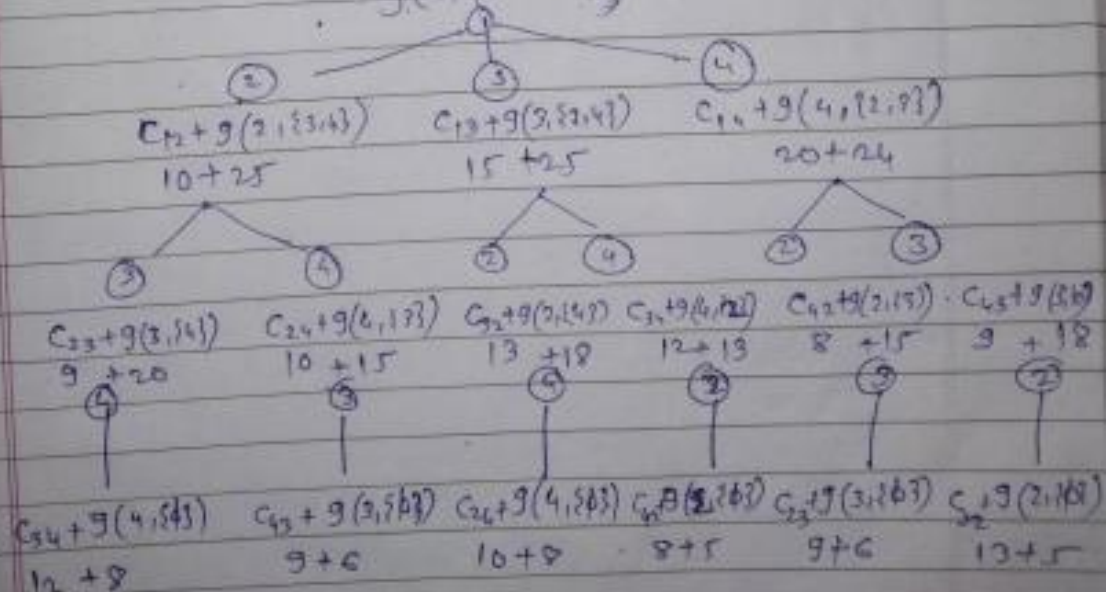 1
2 3 4
C12 + g(2,{3,4}) C13 + g(3,{2,4}) C14 + g(4,{2,3})
10 + 25 15 + 25 20 + 24
3 4 2 4 2 3
C23 + g(3,{4}) C24 + g(4,{3}) C32 + g(2,{4}) C34 + g(4,{2}) C42 + g(2,{3}) C43 + g(3,
9 + 20 10 + 15 13 + 18 12 + 13 8 + 15 9 + 18
4 3 4 2 3 2
C34 + g(4,{ϕ}) C43 + g(3,{ϕ}) C24 + g(4,{ϕ}) C42 g(2,{ϕ}) C23 + g(3,{ϕ}) C32 + g(2,{ϕ})
12 + 8 9 + 6 10 + 8 8 + 5 9 + 6 13 + 5